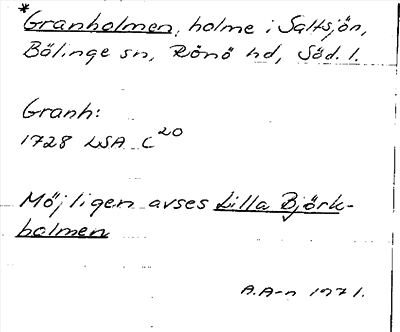 *
Granholmen, holme i Saltsjön,
Bälinge sn, Rönö hd, Söd. l.
Granh:
1728 LSA C20
Möjligen avses Lilla Björk-
holmen
A.A-n 1971.